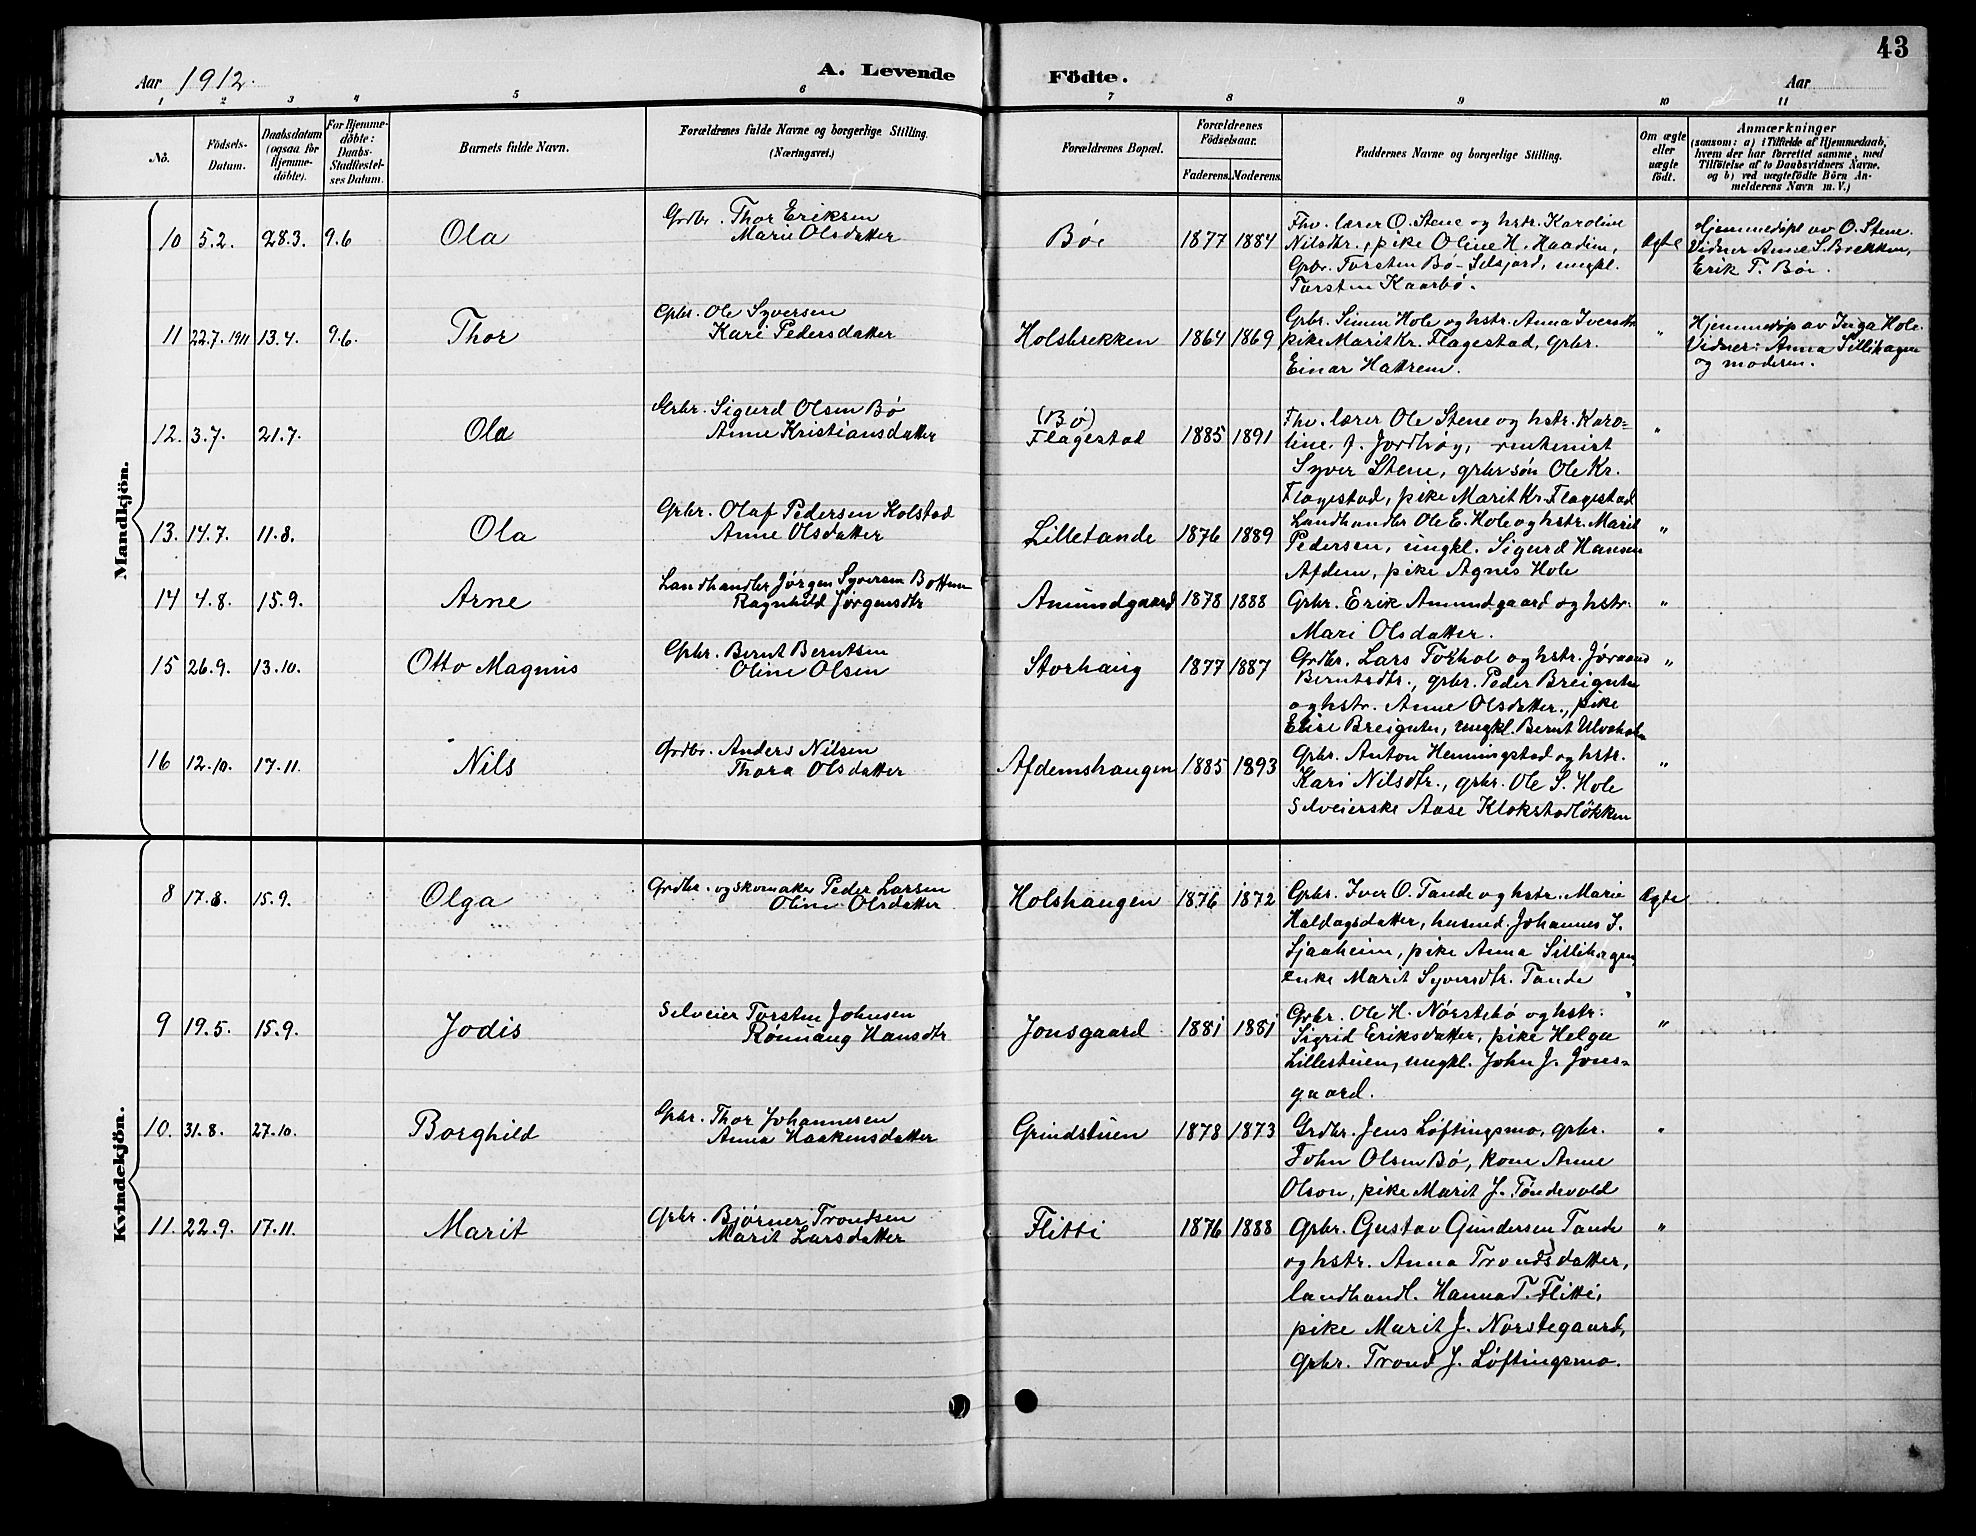 43
Aar 1912. A. Levende Födte. Aar
1 2 3 4 5 6 7 8 9 10 11
No. Födsels-Datum. Daabsdatum (ogsaa for Hjemme-döbte). For Hjemme-döbte: Daabs-Stadfæstel-ses Datum. Barnets fulde Navn. Forældrenes fulde Navne og borgerlige Stilling. (Næringsvei.) Forældrenes Bopæl. Forældrenes Födselsaar. Faderens. Moderens. Faddernes Navne og borgerlige Stilling. Om ægte eller uægte födt. Anmærkninger
(saasom: a) i Tilfælde af Hjemmedaab,
hvem der har forrettet samme, med
Tilföielse af to Daabsvidners Navne,
og b) ved uægtefödte Börn An-
melderens Navn m. V.)
Mandkjön.
10 5.2. 28.3. 9.6 Ola Grdbr. Thor Eriksen
Marie Olsdatter Bøe 1877 1884 Fhv. lærer O. Stene og hstr. Karoline
Nilsdtr., pike Oline H. Haadem,
Gpbr. Torsten Bø - Lesjord, ungkl.
Torsten Kaarbø.
Ægte Hjemmedøpt av O. Stene.
Vidner Anne S. Brekken,
Erik T. Bøe.
11 22.7. 1911 13.4. 9.6. Thor Gpbr. Ole Syversen
Kari Pedersdatter Holsbrekken 1864 1869 Gpbr. Simen Hole og hstr. Anna Iversdtr
pike Marit Kr. Flagestad, grbr.
Einar Hattrem.
" Hjemmedøp av Inga Hole.
Vidner: Anna Sillihagen
og moderen.
12. 3.7. 21.7. Ola Grbr. Sigurd Olsen Bø
Anne Kristiansdatter (Bø)
Flagestad 1885 1891 Fhv. lærer Ole Stene og hstr. Karo-
line f. Jordhøy, rentenist
Syver Stene, grbr søn Ole Kr.
Flagestad, pike Marit Kr. Flagestad
"
13. 14.7. 11.8. Ola Grbr. Olaf Pedersen Kolstad
Anne Olsdatter Lilletande 1876 1889 Landhandler Ole E. Hole og hstr. Marit
Pedersen, ungkl. Sigurd Hansen
Afdem, pike Agnes Hole
"
14 4.8. 15.9. Arne Landhandler Jørgen Syversen Bottem
Ragnhild Jørgensdtr Amundgaard 1878 1888 Grbr. Erik Amundgaard og hstr.
Mari Olsdatter.
"
15 26.9. 13.10. Otto Magnus Gpbr. Bernt Berntsen
Oline Olsen Storhaug 1877 1887 Grdbr. Lars Tokhol og hstr. Jøraand
Berntsdtr., grbr. Peder Breiguten
og hstr. Anne Olsdatter., pike
Elise Breiguten, ungkl. Bernt Ulvoholm
"
16 12.10. 17.11. Nils Grdbr. Anders Nilsen
Thora Olsdatter Afdemshaugen 1885 1893 Grbr. Anton Henningstad og hstr.
Kari Nilsdtr., grbr. Ole S. Hole
Selveierske Aase Klokstadløkken
"
Kvindekjön.
8 17.8. 15.9. Olga Grdbr. og skomaker Peder Larsen
Oline Olsdatter Holshaugen 1876 1872 Gpbr. Iver O. Tande og hstr. Marie
Haldagsdatter, husmd. Johannes I.
Sjaaheim, pike Anna Sillihagen,
enke Marit Syversdtr. Tande
Ægte
9 19.5. 15.9. Jodis Selveier Torsten Johnsen
Rønnaug Hansdtr Jonsgaard 1881 1881 Grbr. Ole H. Nørstebø og hstr.
Sigrid Eriksdatter, pike Helga
Lillestuen, ungkl. John J. Jons-
gaard.
"
10. 31.8. 27.10. Borghild Gpbr. Thor Johannesen
Anna Haakensdatter Grindstuen 1878 1873 Grdbr. Jens Løftingsmo, grbr.
John Olsen Bø, kone Anne
Olson, pike Marit J. Tøndevold
"
11. 22.9. 17.11. Marit Gpbr. Bjørner Trondsen
Marit Larsdatter Flitti 1876 1888 Gpbr. Gustav Gundersen Tande
og hstr. Anna Trondsdatter,
landhandl. Hanna T. Flitti,
pike Marit J. Norstegaard,
Gpbr. Trond J. Løftingsmo.
"